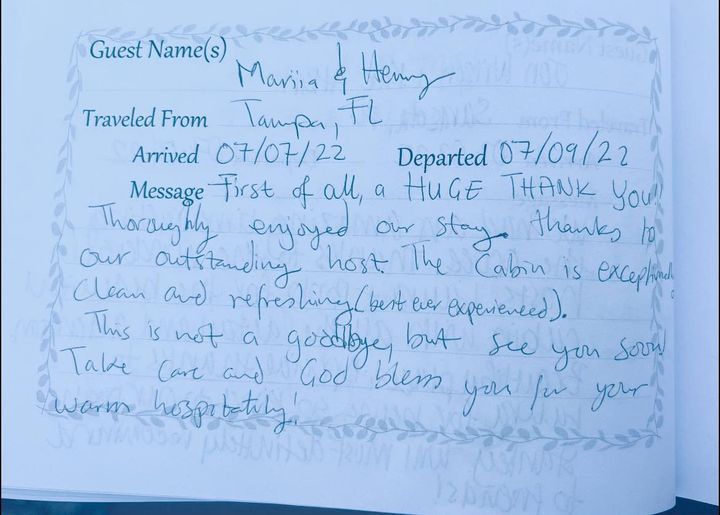 Guest Name(s) Mariia & Henry
Traveled From Tampa, FL
Arrived 07/07/22 Departed 07/09/22
Message First of all, a HUGE THANK YOU!!
Thoroughly enjoyed our stay. thanks to
our outstanding host. The Cabin is exceptional
clean and refreshing (best ever experienced).
This is not a goodbye, but see you soon!
Take care and God bless you for your
warm hospitality!